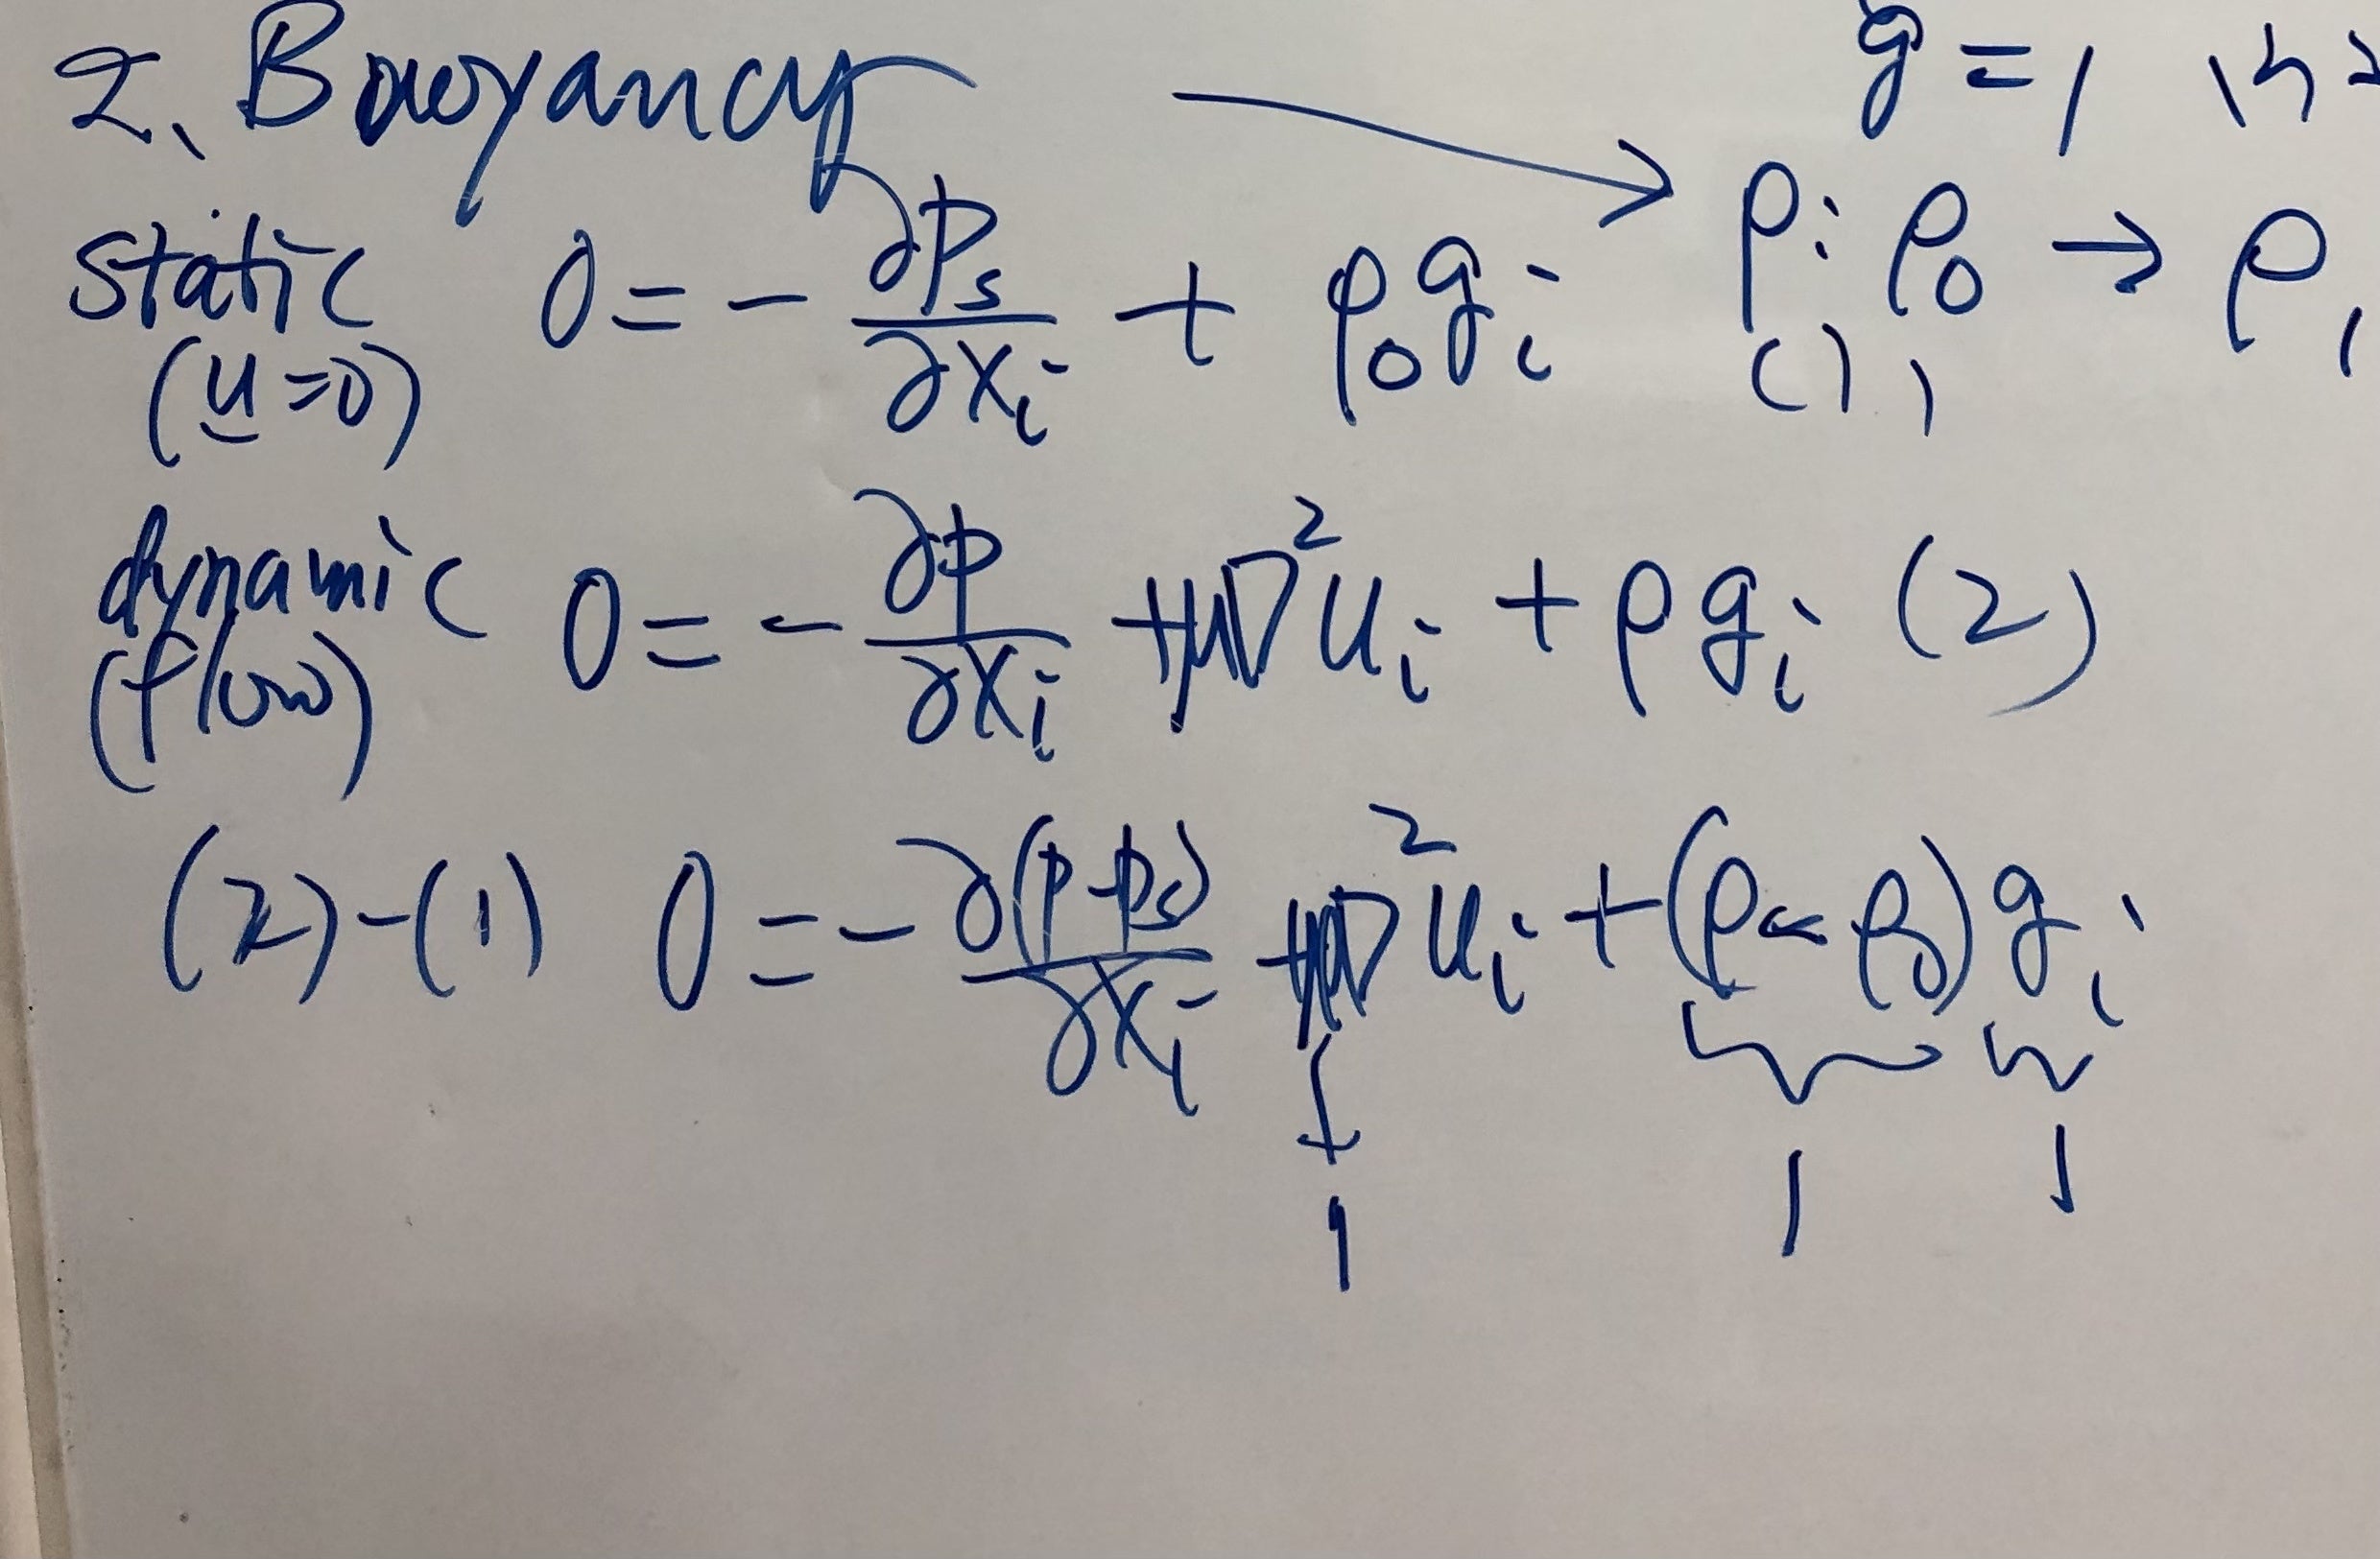 2. Buoyancy → g = 1 in =
static 0 = - ∂Ps/∂xi + ρ0 gi ρ: ρ0 → ρ1
(u=0) (1)
dynamic 0 = - ∂p/∂xi + μ∇²ui + ρ gi (2)
(flow)
(2)-(1) 0 = - ∂(p-ps)/∂xi + μ∇²ui + (ρ - ρ0) gi
1 1 1